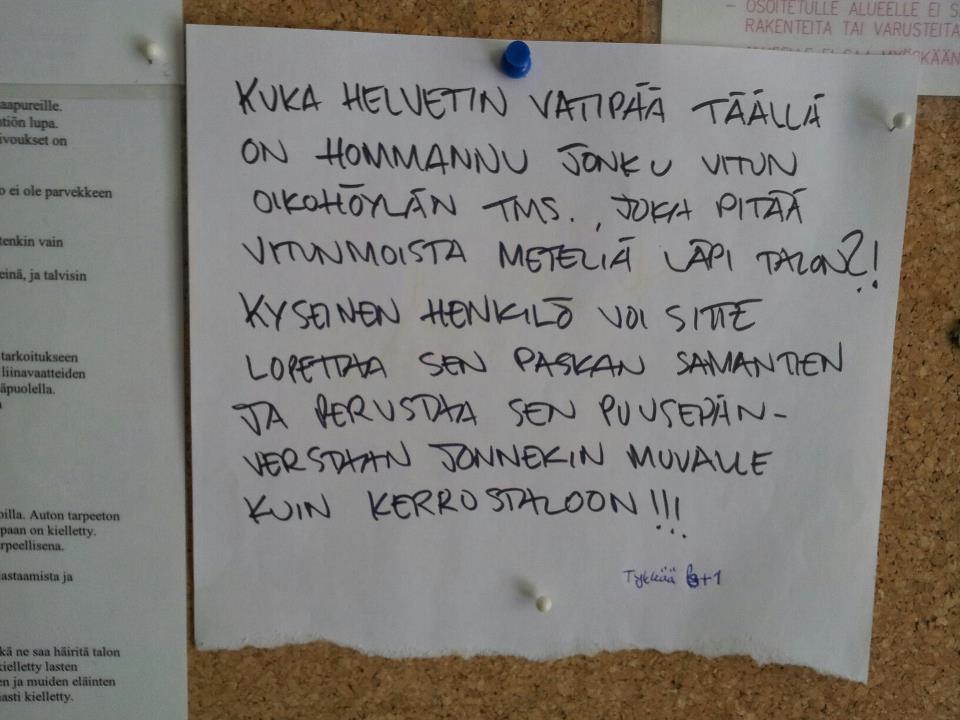 KUKA HELVETIN VATIPÄÄ TÄÄLLÄ
ON HOMMANNU JONKU VITUN
OIKOHÖYLÄN TMS., JOKA PITÄÄ
VITUNMOISTA METELIÄ LÄPI TALON?!
KYSEINEN HENKILÖ VOI SITTE
LOPETTAA SEN PASKAN SAMANTIEN
JA PERUSTAA SEN PUUSEPÄN-
VERSTAAN JONNEKIN MUVALLE
KUIN KERROSTALOON!!!
Tykkää +1
- OSOITETULLE ALUEELLE EI S
RAKENTEITA TAI VARUSTEITA
aapureille.
tiön lupa.
ivoukset on
o ei ole parvekkeen
tenkin vain
einä, ja talvisin
tarkoitukseen
liinavaatteiden
äpuolella.
oilla. Auton tarpeeton
paan on kielletty.
rpeellisena.
astaamista ja
kä ne saa häiritä talon
kielletty lasten
en ja muiden eläinten
asti kielletty.